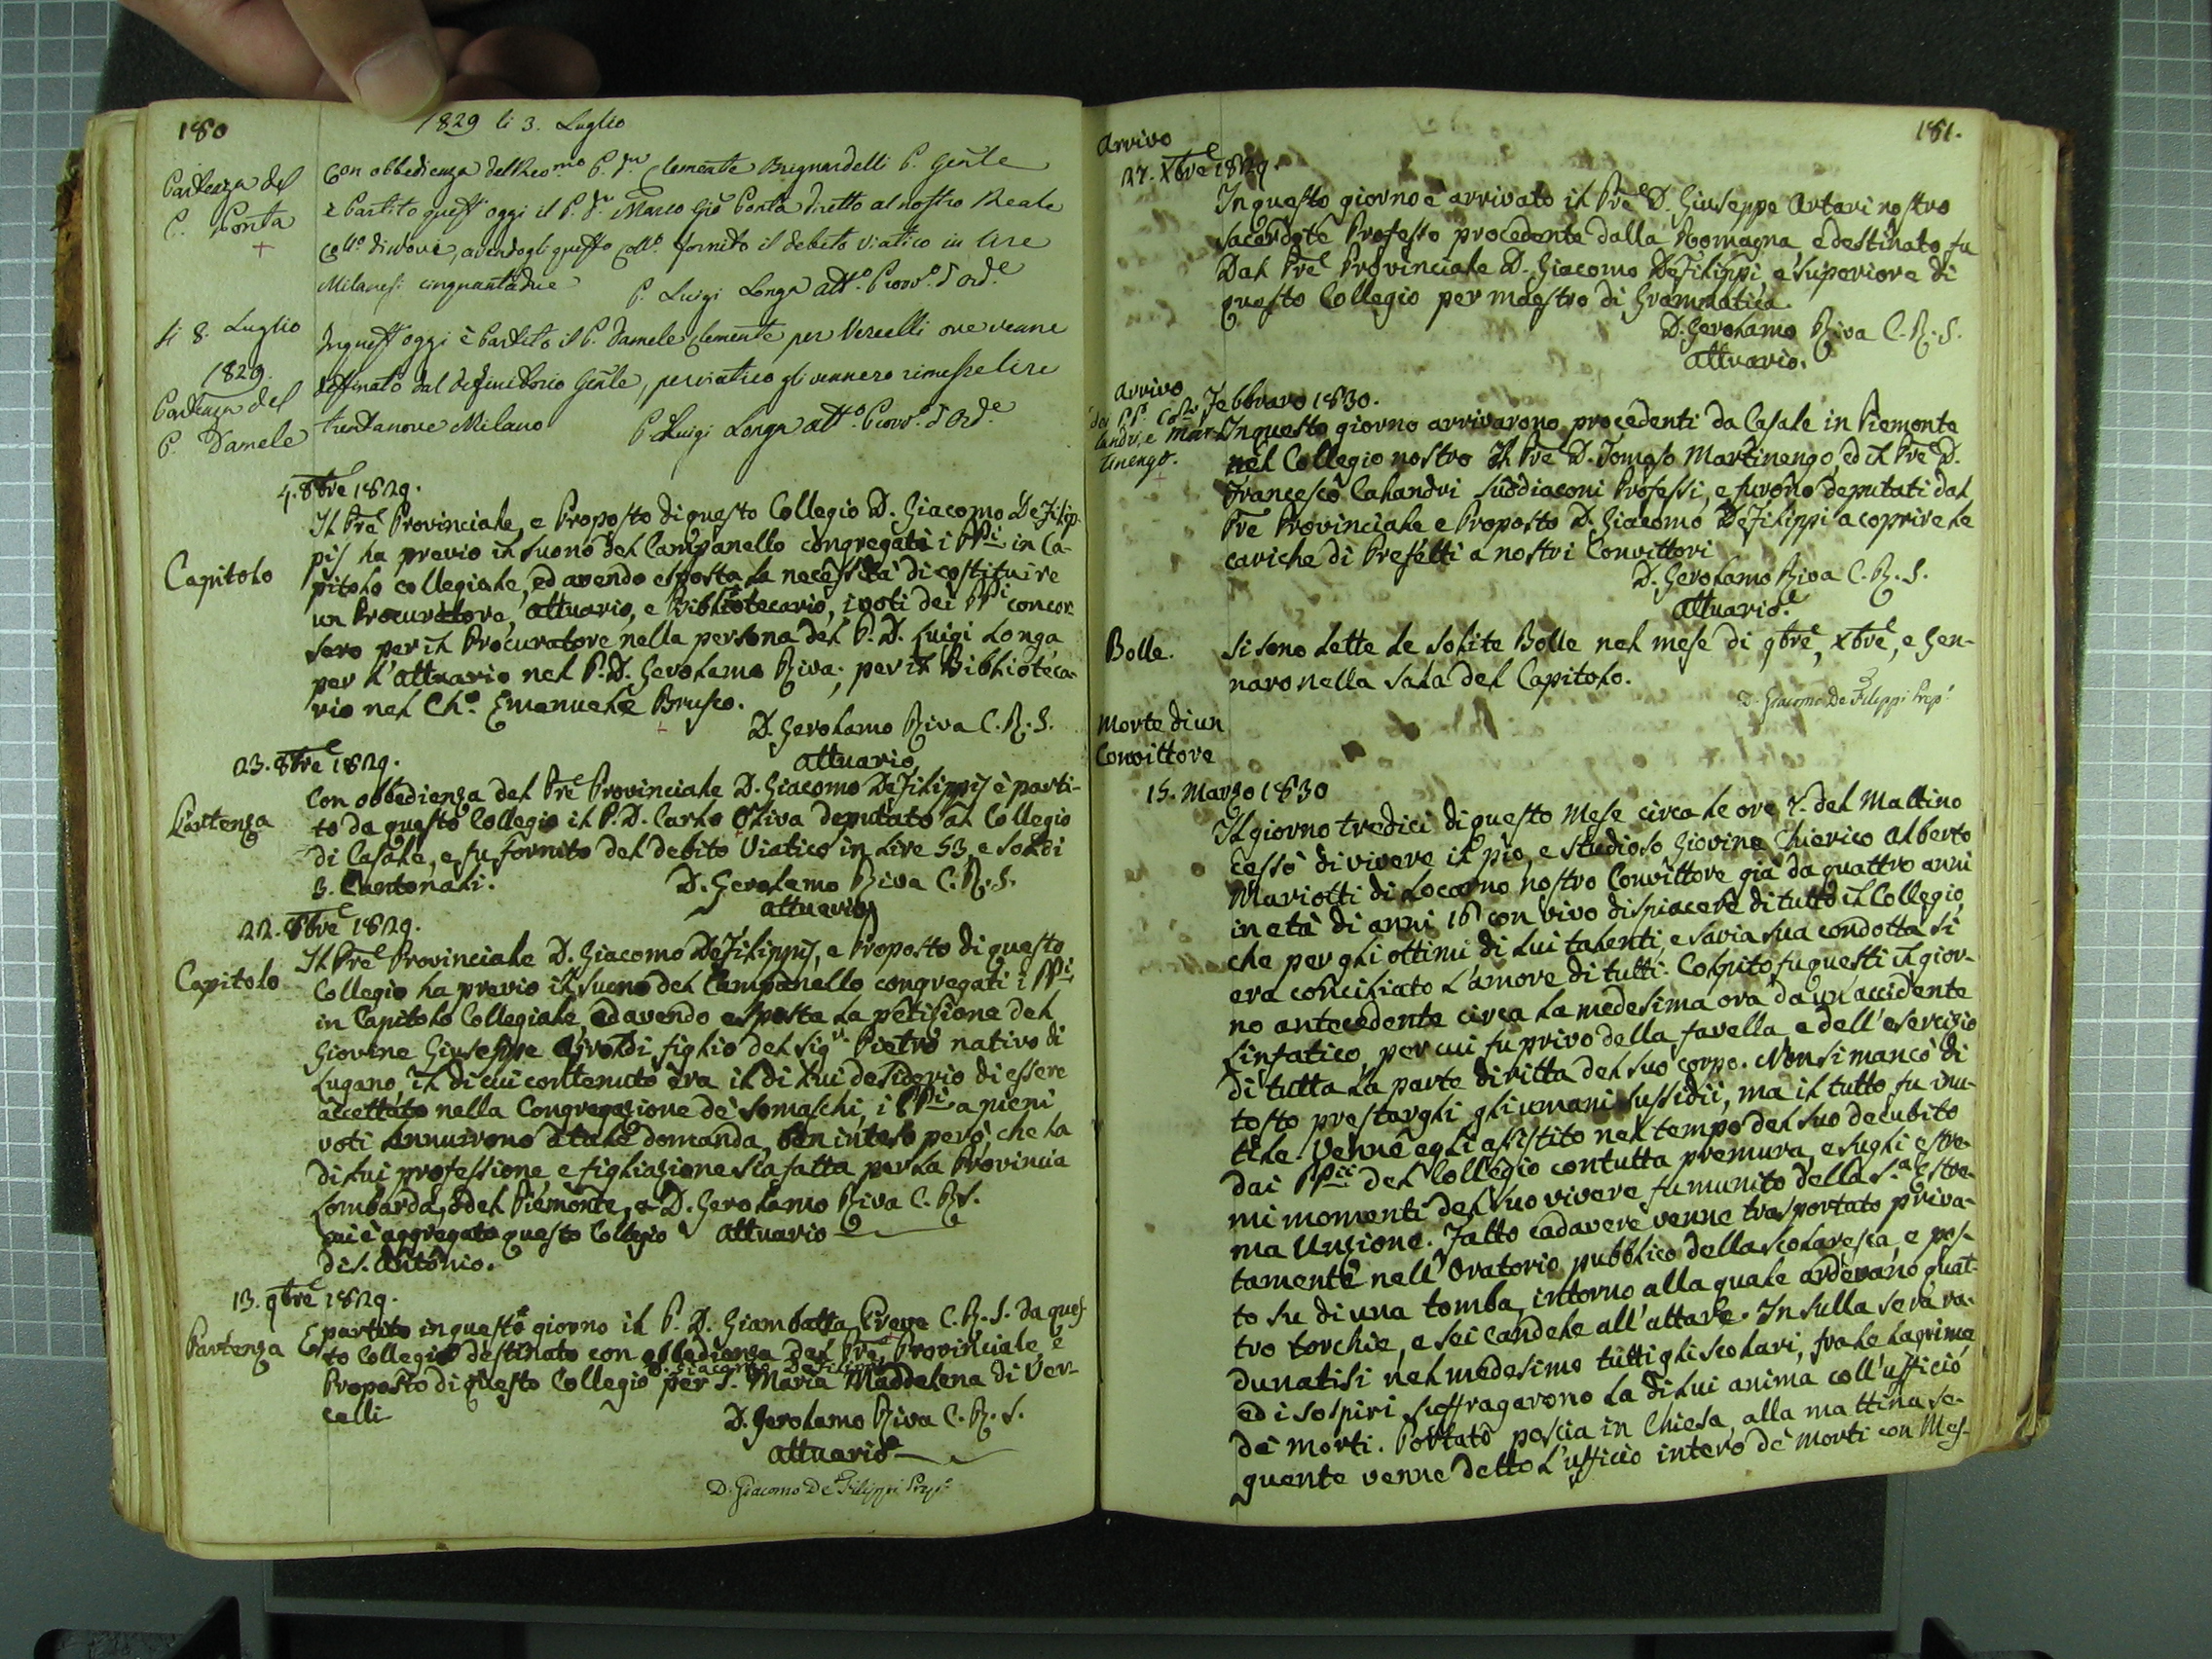 180
1829 li 3. Luglio
Partenza del
P. Ponta
Con obbedienza del Reo.mo P. Dn Clemente Brignardelli P. Gen̄le
è Partito quest' oggi il P. Dn Marco Gio Ponta diretto al nostro Reale
Coll.o di Novi, avendogli questo Coll.o fornito il debito viatico in lire
Milanesi cinquantadue P. Luigi Longa att.o Provv.o d'Ord.e
li 8. Luglio
1829.
Partenza del
P. Damele
In quest' oggi è Partito il P. Damele Clemente per Vercelli ove venne
destinato dal definitorio Gen̄le, per viatico gli vennero rimesse lire
trentanove Milano P. Luigi Longa att.o Provv.o d'Ord.e
4. 8bre 1829.
Capitolo
Il Pre Provinciale, e Proposto di questo Collegio D. Giacomo DeFilip-
pis ha previo il suono del Campanello congregati i PPi in Ca-
pitolo collegiale, ed avendo esposta la necessità di costituire
un Procuratore, attuario, e Bibliotecario, i voti dei PPi concor-
sero per il Procuratore nella persona del P. D. Luigi Longa
per l'attuario nel P. D. Gerolamo Riva; per il Biblioteca-
rio nel Ch.o Emanuele Brusco.
D. Gerolamo Riva C. R. S.
attuario
23. 8bre 1829.
Partenza
Con obbedienza del Pre Provinciale D. Giacomo DeFilippis è parti-
to da questo Collegio il P. D. Carlo Oliva deputato al Collegio
di Casale, e fu fornito del debito Viatico in Lire 53 e soldi
3. Cantonali. D. Gerolamo Riva C. R. S.
attuario
22. 8bre 1829.
Capitolo
Il Pre Provinciale D. Giacomo DeFilippis, e Proposto di questo
Collegio ha previo il suono del Campanello congregati i PPi
in Capitolo Collegiale, ed avendo esposta la petizione del
Giovine Giuseppe Airoldi figlio del Sigr. Pietro nativo di
Lugano, il di cui contenuto era il di lui desiderio di essere
accettato nella Congregazione de' Somaschi, i PPi a pieni
voti annuirono a tale domanda, ben inteso però, che la
di lui professione, e figliazione sia fatta per la Provincia
Lombarda, o del Piemonte, a D. Gerolamo Riva C. R. S.
cui è aggregato questo Collegio attuario
di S. Antonio.
13. 9bre 1829.
Partenza
È partito in questo giorno il P. D. Giambatta Preve C. R. S. da ques-
to Collegio destinato con obbedienza del Pre Provinciale, e
D. Giacomo DeFilippi
Proposto di questo Collegio per S. Maria Maddelena di Ver-
celli
D. Gerolamo Riva C. R. S.
attuario
D. Giacomo De Filippi Prep.o
181.
Arrivo
27. Xbre 1829.
In questo giorno è arrivato il Pre D. Giuseppe Artari nostro
sacerdote Professo procedente dalla Romagna e destinato fu
Dal Pre Provinciale D. Giacomo DeFilippi, e Superiore di
questo Collegio per maestro di Grammatica.
D. Gerolamo Riva C. R. S.
attuario.
Arrivo
dei P.P. Ca-
landri, e Mar-
tinengo.
Febbraro 1830.
In questo giorno arrivarono procedenti da Casale in Piemonte
nel Collegio nostro Il Pre D. Tomaso Martinengo, ed il Pre D.
Francesco Calandri Suddiaconi Professi, e furono deputati dal
Pre Provinciale e Proposto D. Giacomo DeFilippi a coprire le
cariche di Prefetti a nostri Convittori
D. Gerolamo Riva C. R. S.
attuario.
Bolle.
Si sono lette le solite Bolle nel mese di 9bre, Xbre, e Gen-
naro nella sala del Capitolo.
D. Giacomo De Filippi Prep.o
Morte di un
Convittore
15. Marzo 1830
Il giorno tredici di questo Mese circa le ore 7. del Mattino
cessò di vivere il pio, e studioso Giovine Chierico Alberto
Mariotti di Locarno nostro Convittore già da quattro anni
in età di anni 16 con vivo dispiacere di tutto il Collegio,
che per gli ottimi di lui talenti, e savia sua condotta si
era conciliato l'amore di tutti. Colpito fu questi il gior-
no antecedente circa la medesima ora da un accidente
linfatico, per cui fu privo della favella, e dell'esercizio
di tutta la parte diritta del suo corpo. Non si mancò di
tosto prestargli gli umani sussidii, ma il tutto fu inu-
tile. Venne egli assistito nel tempo del suo decubito
dai PPri del Collegio con tutta premura, e sugli estre-
mi momenti del suo vivere fu munito della S.a Estre-
ma Unzione. Fatto cadavere venne trasportato priva-
tamente nell'Oratorio pubblico della scolaresca, e pos-
to su di una tomba, intorno alla quale ardevano quat-
tro torchie, e sei candele all'altare. In sulla sera ra-
dunatisi nel medesimo tutti gli scolari, fra le lagrime
ed i sospiri suffragarono la di lui anima coll'ufficio
de' morti. Portato poscia in Chiesa, alla mattina se-
guente venne detto l'ufficio intero de' morti con Mes-